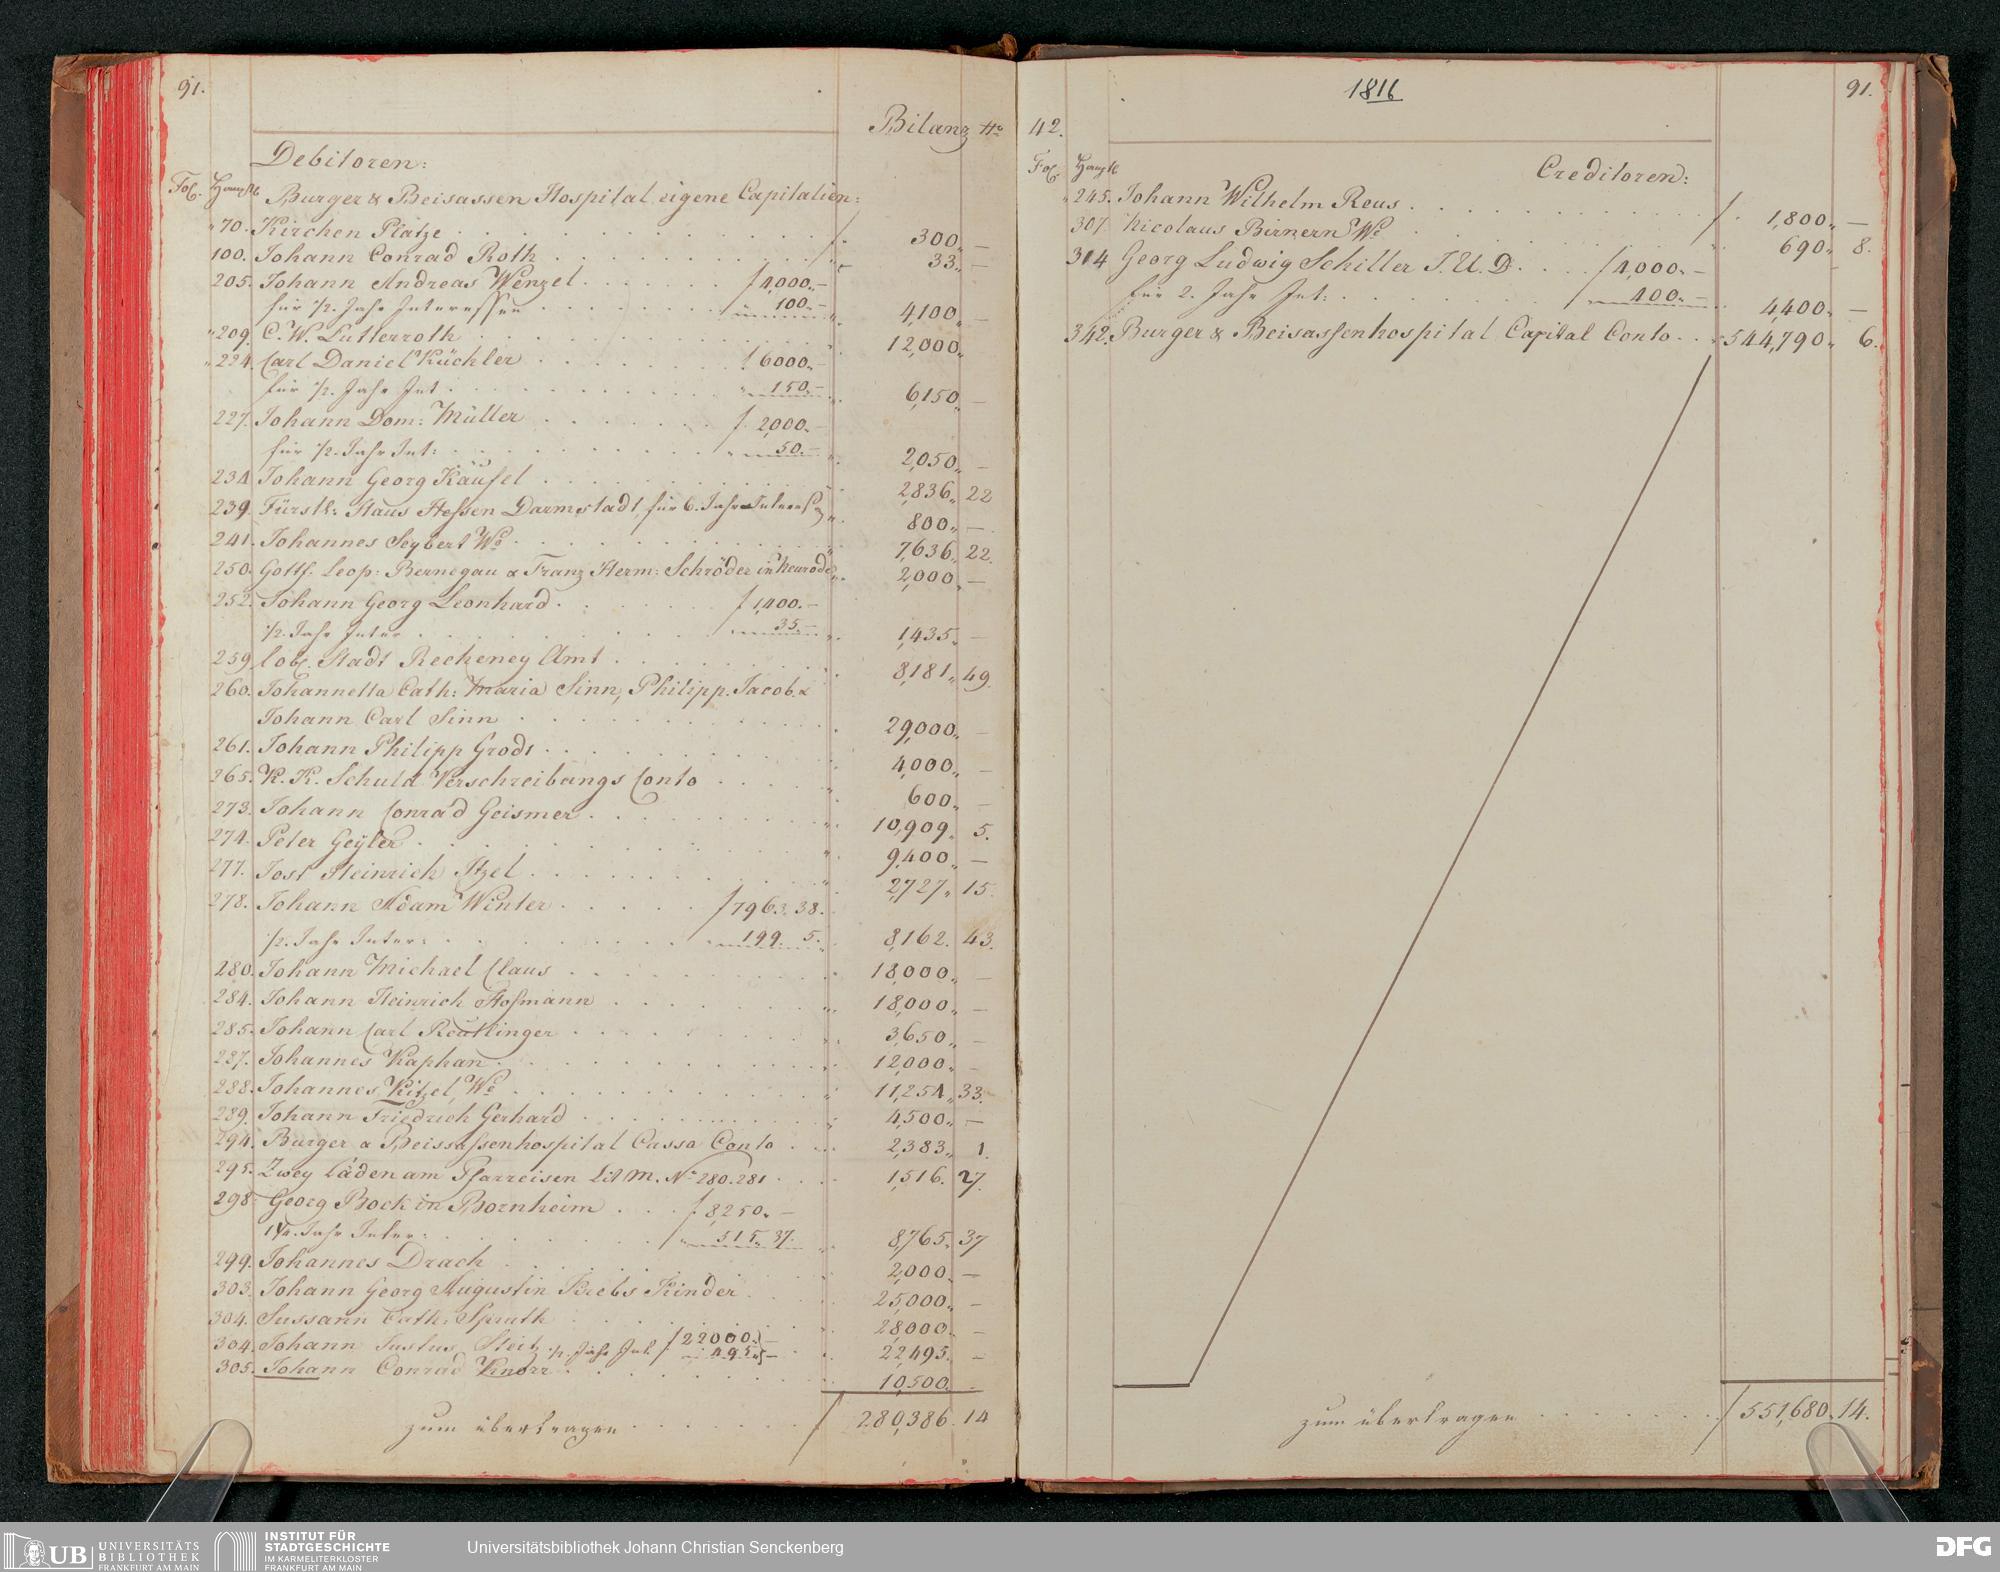 91.
Bilanz No
Debitoren:
Fol. Hauptb.
Burger & Beisassen Hospital eigene Capitalien:
" 70. Kirchen Plätze . . . f 300 " —
100. Johann Conrad Roth . . . " 33 " —
205. Johann Andreas Wenzel . . . f 4,000 " —
für 1/2. Jahr Interessen . . . " 100. — " 4,100 " —
" 209. C. W. Lutterroth . . . " 12,000 "
" 224. Carl Daniel Küchler . . . f 6000 " —
für 1/2. Jahr Int . . . " 150. — " 6,150 " —
227. Johann Dom: Müller . . . f 2,000. —
für 1/2. Jahr Int: . . . " 50. — " 2,050 " —
234. Johann Georg Käufel . . . " 2,836 " 22
239. Fürstl: Haus Hessen Darmstadt, für 6. Jahr " 800 " —
241. Johannes Seybert We . . . " 7,636 " 22.
250. Gottf. Leop: Bernegau & Franz Herm: Schröder in Neurode " 2,000 " —
252. Johann Georg Leonhard . . . f 1,400. —
1/2. Jahr Inter . . . " 35. — " 1,435 " —
259. löbl. Stadt Recheney Amt . . . " 8,181 " 49.
260. Johannetta Cath: Maria Sinn, Philipp. Jacob. &
Johann Carl Sinn . . . " 29,000 " —
261. Johann Philipp Grods . . . " 4,000 " —
265. K. K. Schuld Verschreibungs Conto . . . " 600 " —
273. Johann Conrad Geismer . . . " 10,909 " 5.
274. Peter Geyler . . . " 9,400 " —
277. Jost Heinrich Itzel . . . " 2,727 " 15.
278. Johann Adam Winter . . . f 7963. 38.
1/2. Jahr Inter: . . . " 199. 5. " 8,162. 43.
280. Johann Michael Claus . . . " 18,000 " —
284. Johann Heinrich Hofmann . . . " 18,000 " —
285. Johann Carl Reutlinger . . . " 3,650 " —
287. Johannes Kaphan . . . " 12,000 " —
288. Johannes Kitzel, We . . . " 11,254 " 33.
289. Johann Friedrich Gerhard . . . " 4,500 " —
294. Burger & Beisassenhospital Cassa Conto . . . " 2,383 " 1.
295. Zwey Läden am Pfarreisen Lit M. No 280.281 . . . 1,516. 27.
298. Georg Bock in Bornheim . . . f 8,250 " —
1 1/4. Jahr Inter: . . . " 515 " 37. " 8,765 " 37
299. Johannes Drach . . . " 2,000 " —
303. Johann Georg Augustin Krebs Kinder . . . 25,000 " —
304. Sussann Cath: Spruth . . . 28,000 " —
304. Johann Justus Steitz 1/2. Jahr Int. f 22000 " — 495 " — 22,495. —
305. Johann Conrad Knorr . . . 10,500 "
zum übertragen . . . f 280,386. 14
1816
91.
42.
Fol. Hauptb.
Creditoren:
" 245. Johann Wilhelm Reus . . . f 1,800 " —
307. Nicolaus Birnern We . . . " 690 " 8.
314 Georg Ludwig Schiller J. U. D. . . . f 4,000. —
für 2. Jahr Int: . . . " 400. — 4,400 " —
342. Burger & Beisassenhospital Capital Conto . . . " 544,790 " 6.
zum übertragen . . . f 551,680. 14.
UB UNIVERSITÄTS BIBLIOTHEK FRANKFURT AM MAIN
INSTITUT FÜR STADTGESCHICHTE IM KARMELITERKLOSTER FRANKFURT AM MAIN
Universitätsbibliothek Johann Christian Senckenberg
DFG